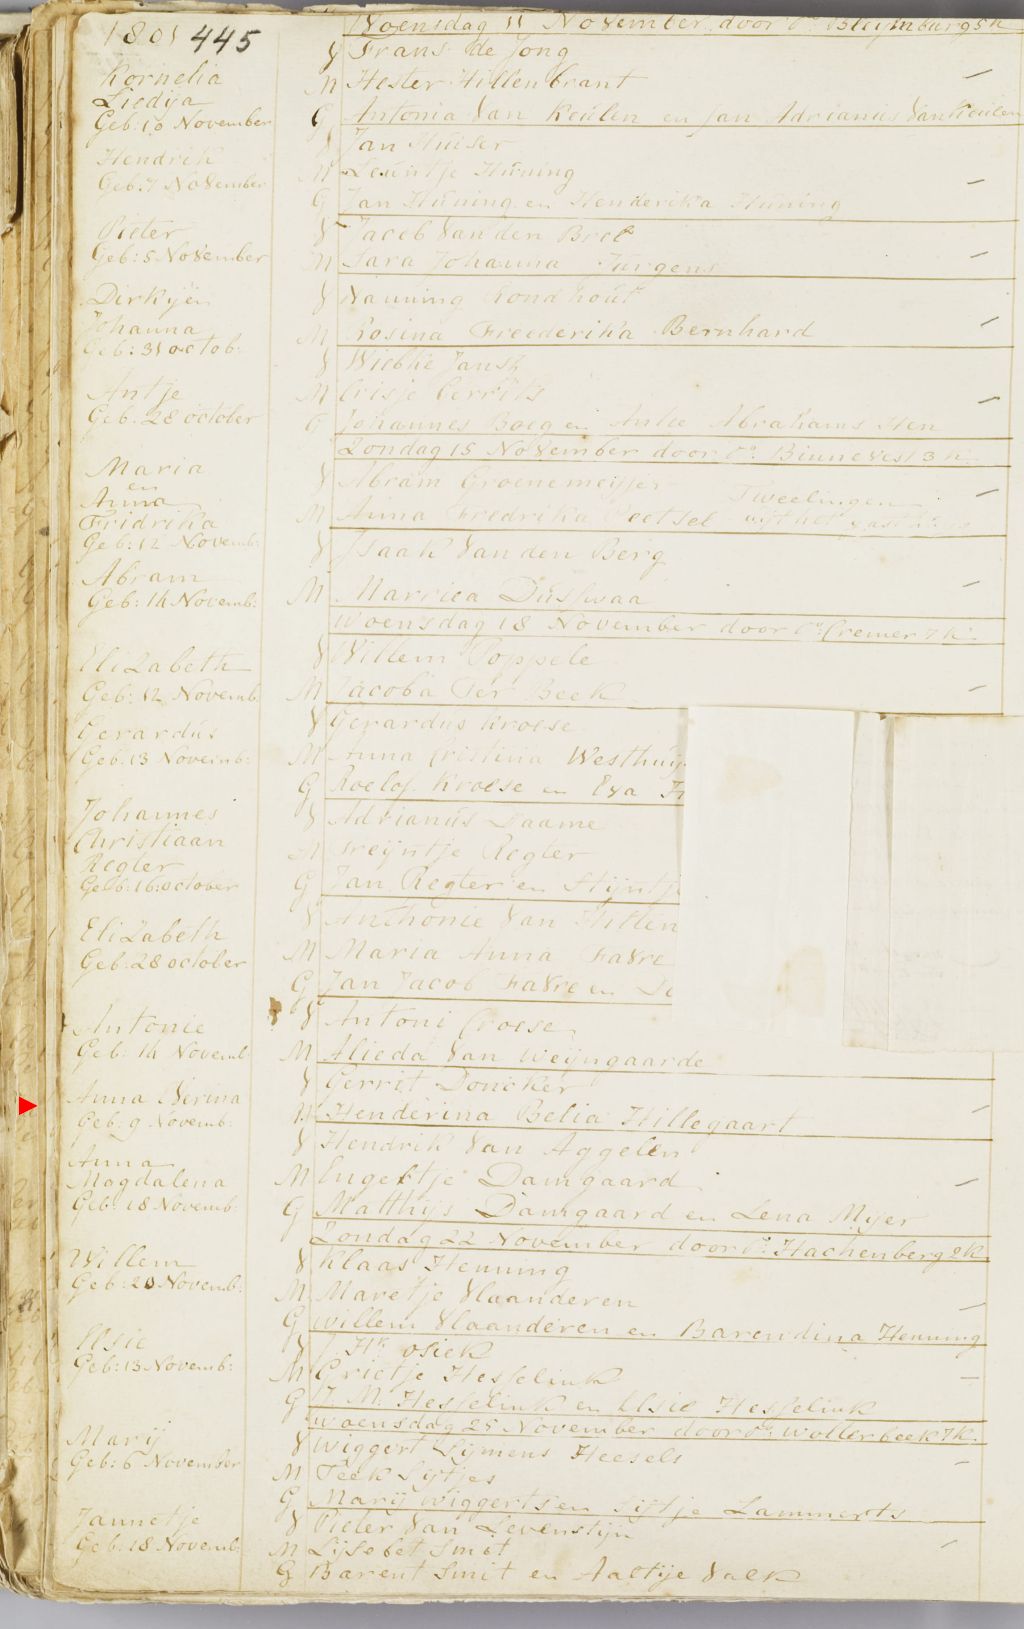 1801 445
Woensdag 11 November door Ds Bleijnburg 5 k
Kornelia
Liedija
Geb: 10 November
V Frans de Jong
M Hester Hillenbrant
G Antonia Van Keulen en Jan Adrianus Van Keulen
Hendrik
Geb: 7 November
V Jan Huiser
M Leuntje Huning
G Jan Huning en Henderika Huning
Pieter
Geb: 5 November
V Jacob Van den
M Sara Johanna Jurgens
Dirkjen
Johanna
Geb: 31 octob:
V Nanning Rondhout
M Rosina Freederika Bernhard
Antje
Geb. 28 october
V Wiebke Jansz
M Crisje Gerrits
G Johannes en Abrahams
Zondag 15 November door Ds: Binnevest 3 k
Maria
en
Anna
Fridrika
Geb: 12 Novemb:
V Abram Groenemeijer
Tweelingen
M Anna Fredrika Peetsel uijt het gasthuis
Abram
Geb: 14 Novemb:
V Isaak Van den Berg
M
Woensdag 18 November door Ds: Cremer 7 k.
Elizabeth
Geb: 12 Novemb.
V Willem Poppele
M Jacoba Ter Beek
Gerardus
Geb. 13 Novemb:
V Gerardus Kroese
M Anna Cristina Westhuij
G Roelof Kroese en Eva H
Johannes
Christiaan
Regter
Geb: 16 october
V Adrianus Daame
M Treijntje Regter
G Jan Regter en Stijntj
Elizabeth
Geb: 28 october
V Anthonie Van Hillen
M Maria Anna Favre
G Jan Jacob Favre en
Antonie
Geb: 14 Novemb.
V Antoni Croese
M Alieda Van Weijngaarde
Anna Berina
Geb: 9 Novemb:
V Gerrit Doncker
M Henderina Belia Hillegaart
Anna
Magdalena
Geb: 18 Novemb:
V Hendrik Van Aggelen
M Engeltje Damgaard
G Matthijs Damgaard en Lena Mijer
Zondag 22 November door Ds: Hachenberg 2 K
Willem
Geb: 20 Novemb:
V Klaas Henning
M Maretje Vlaanderen
G Willem Vlaanderen en Barendina Henning
Elsie
Geb: 13 Novemb:
V J. Hk osiek
M Grietje Hesselink
G M. Hesselink en Elsie Hesselink
Woensdag 25 November door Ds: Wolterbeek 7 K
Marij
Geb: 6 November
V Wiggert Sijmens Heesels
M Teek Sijtjes
G Marij Wiggerts en Sijtje Lammerts
Jannetje
Geb: 18 Novemb:
V Pieter Van Levenstijn
M Lijsebet Smit
G Barent Smit en Aaltije Valk